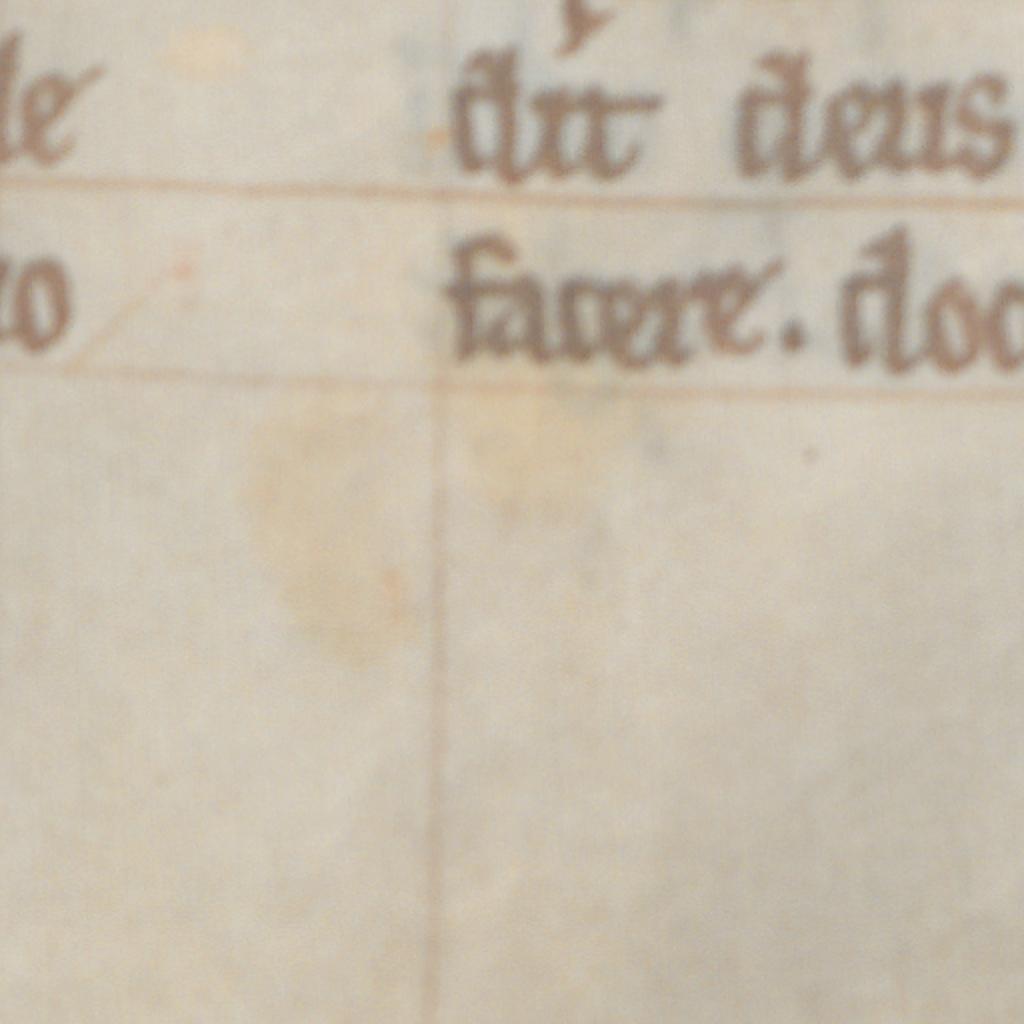 le dıt deus
ro facere. doc